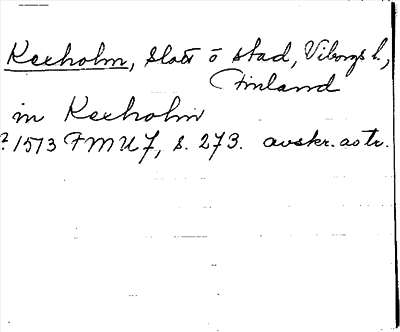 Kexholm, slott o stad, Viborgs l.,
Finland
in Kexholm
? 1513 FMU 7, s. 273. avskr. a o tr.